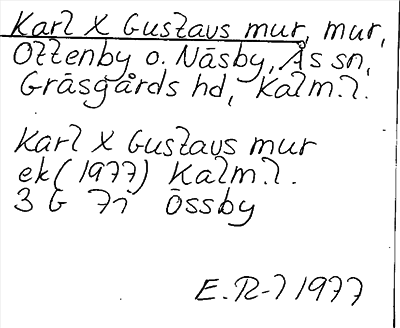 Karl X Gustavs mur, mur,
Ottenby o. Näsby, Ås sn,
Gräsgårds hd, Kalm.l.
Karl X Gustavs mur
ek (1977) Kalm.l.
3 G 7i Össby
E. R-l 1977